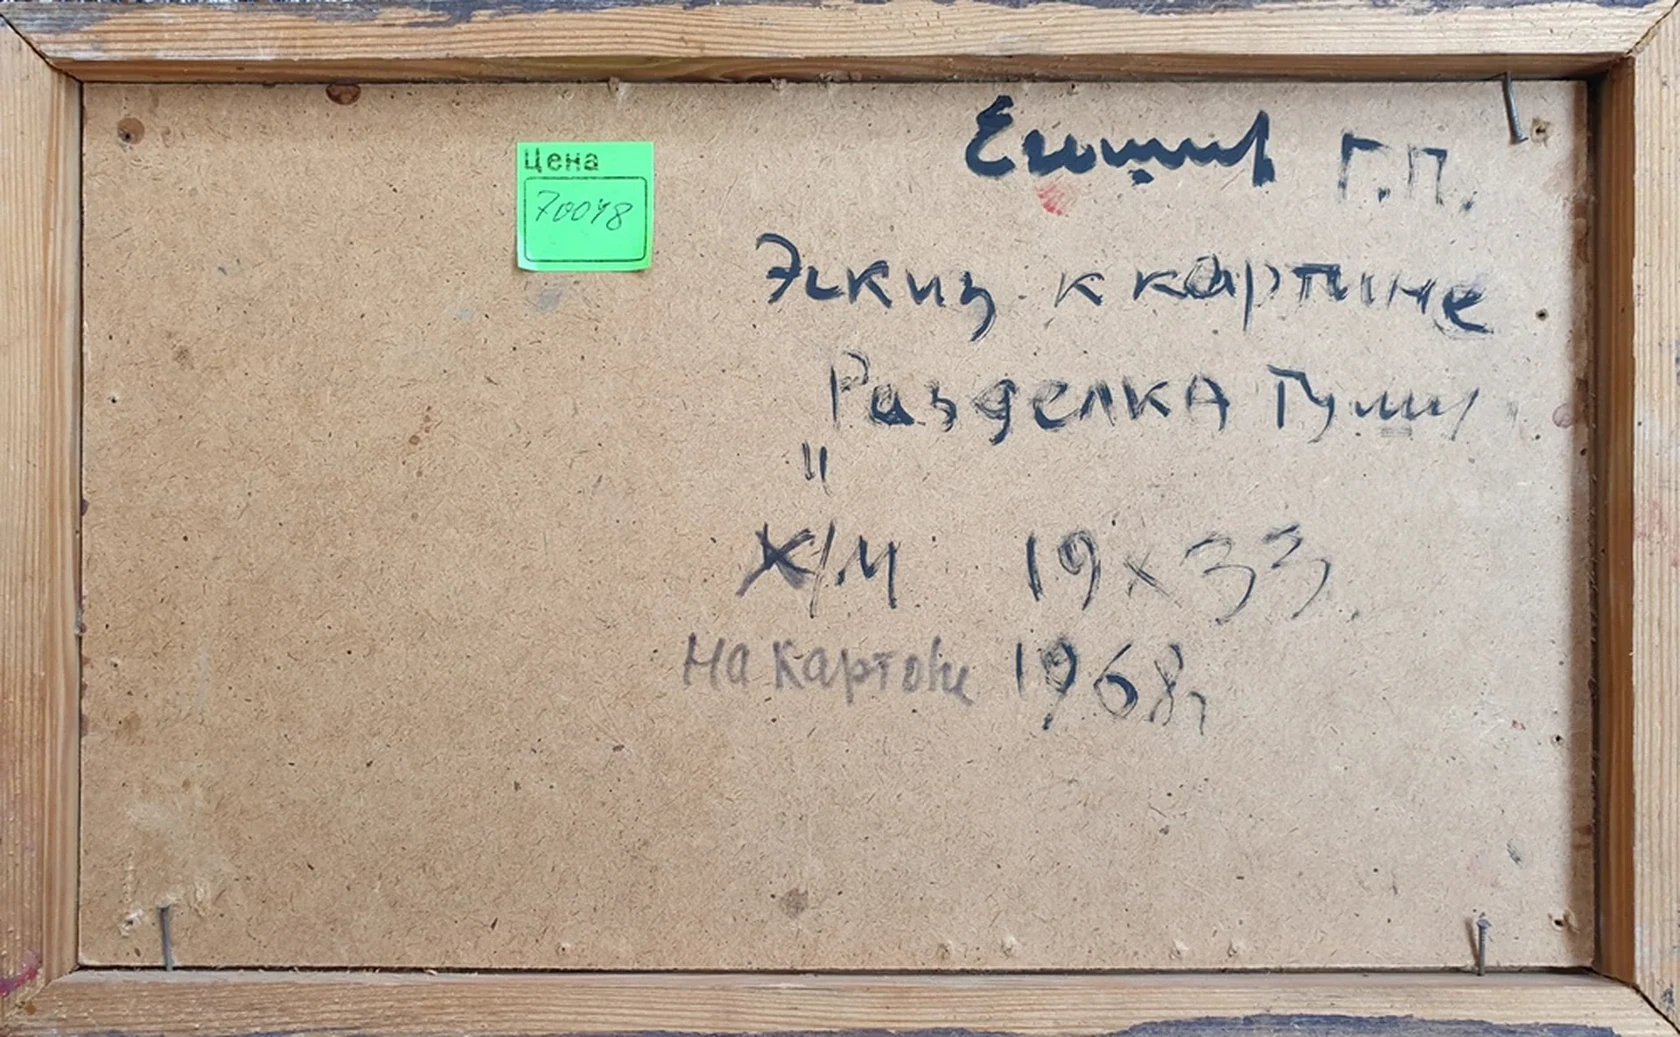 Цена
70048
Г.П.
Эскиз к картине
Разделка Туши
"
Х/М 19х33.
на картоне 1968г